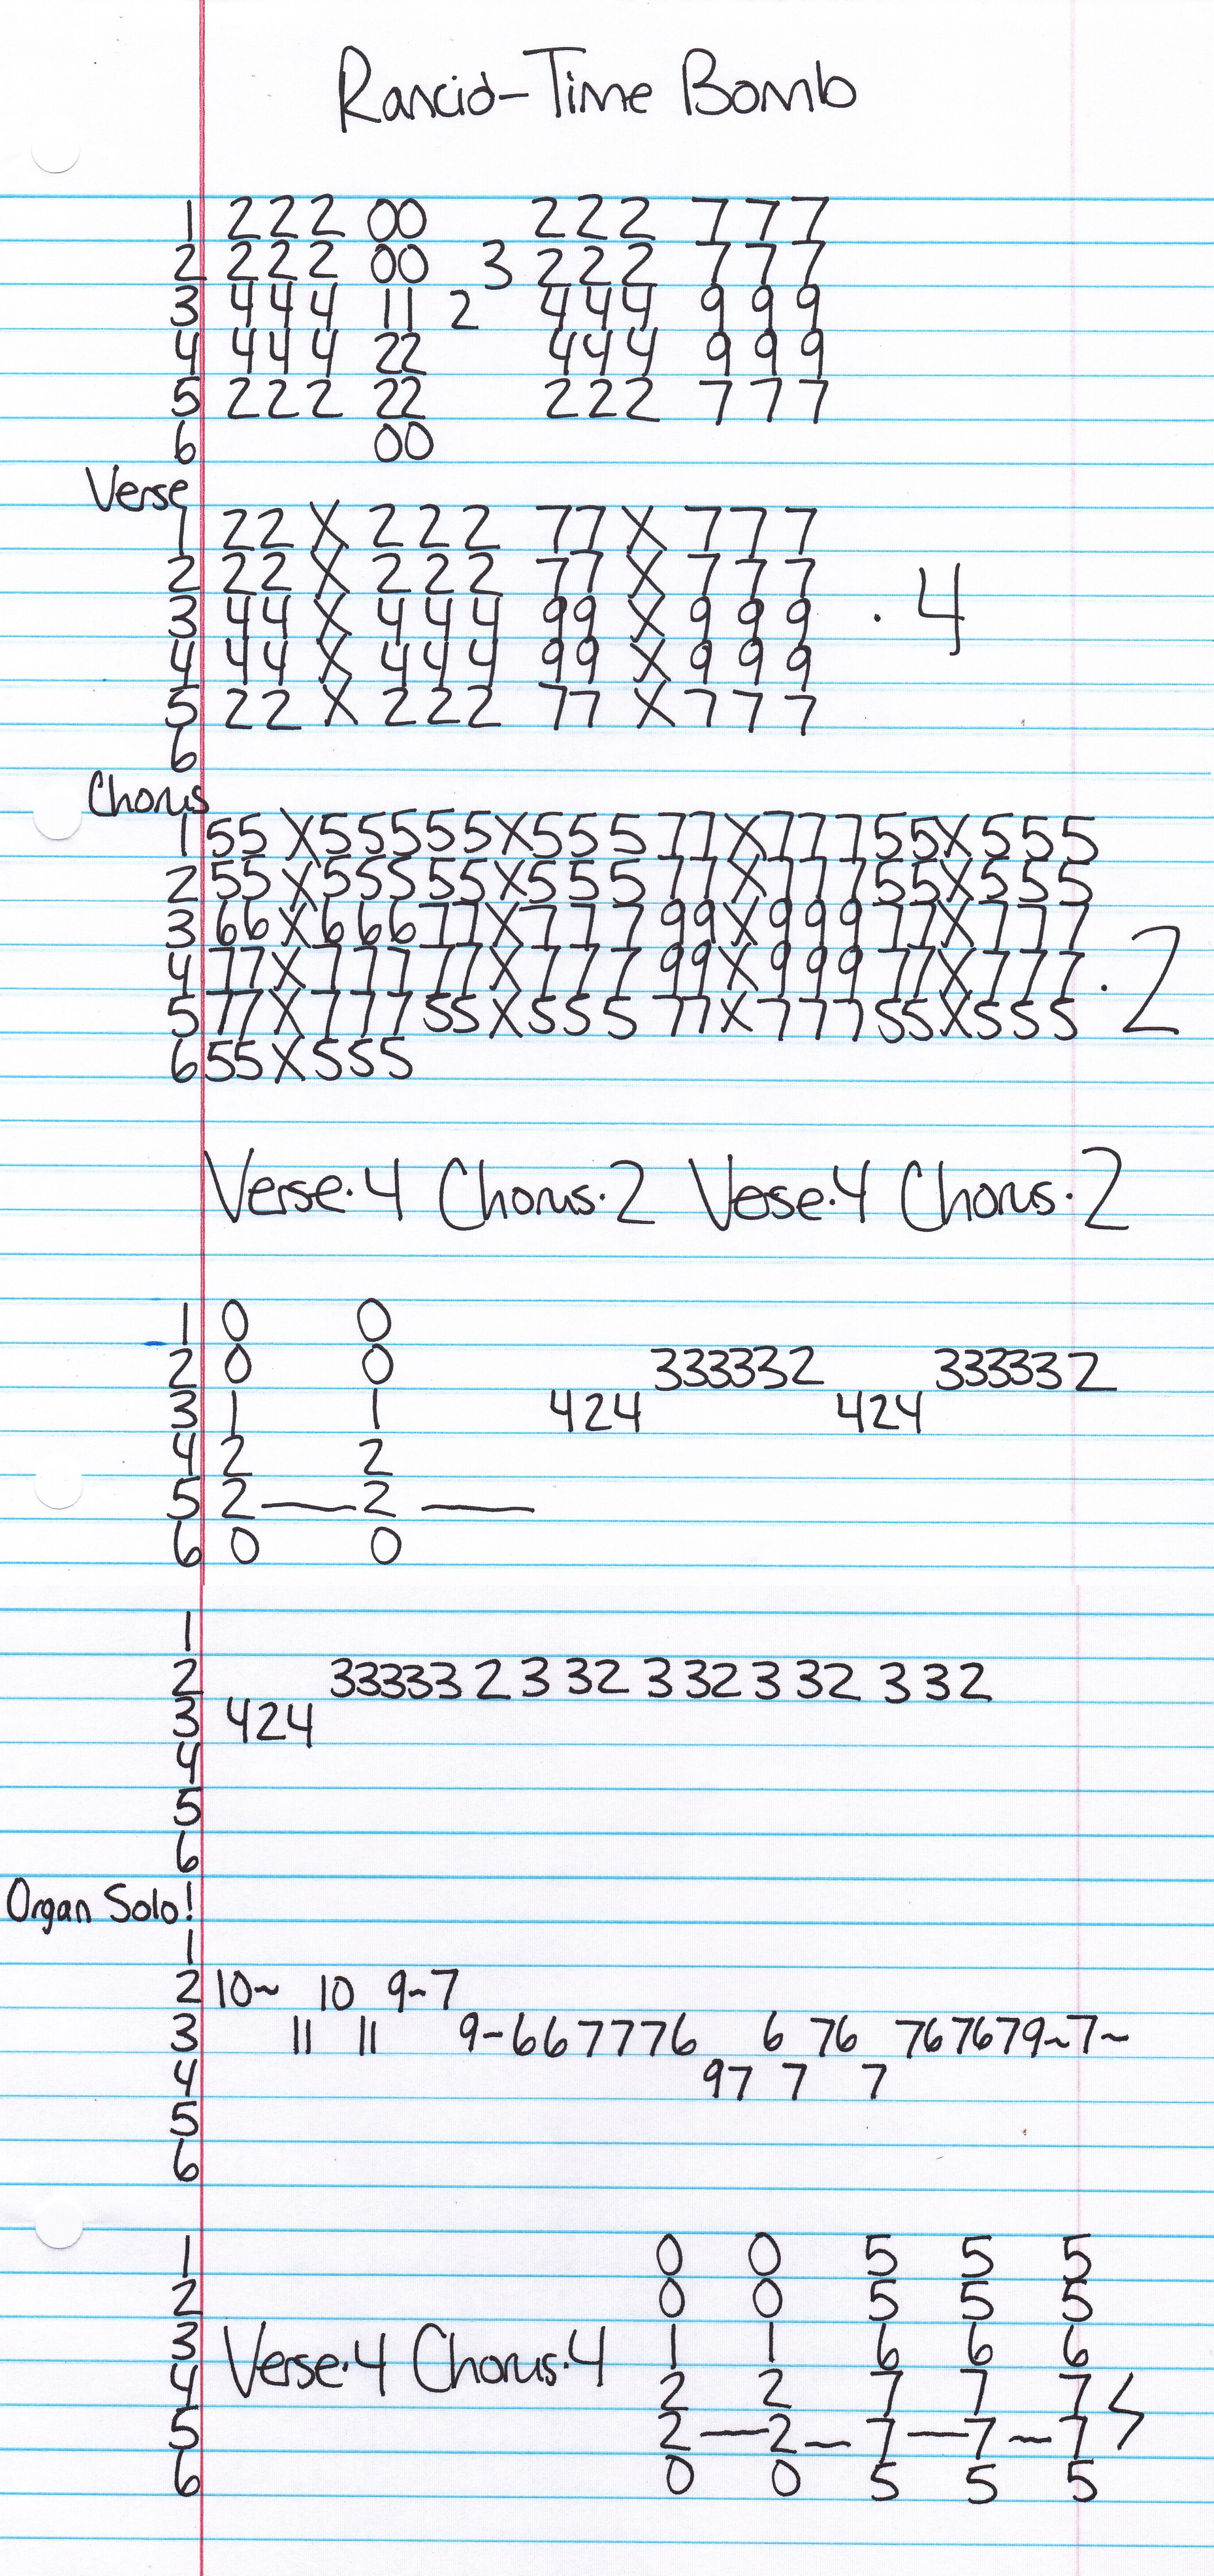 Rancid-Time Bomb
1 222 00 222 777
2 222 00 3 222 777
3 444 11 2 444 999
4 444 22 444 999
5 222 22 222 777
6 00
Verse
1 22 X 222 77 X 777
2 22 X 222 77 X 777
3 44 X 444 99 X 999 · 4
4 44 X 444 99 X 999
5 22 X 222 77 X 777
6
Chorus
1 55 X 555 55 X 555 77 X 777 55 X 555
2 55 X 555 55 X 555 77 X 777 55 X 555
3 66 X 666 77 X 777 99 X 999 77 X 777
4 77 X 777 77 X 777 99 X 999 77 X 777 · 2
5 77 X 777 55 X 555 77 X 777 55 X 555
6 55 X 555
Verse·4 Chorus·2 Vese·4 Chorus·2
1 0 0
2 0 0 333332 333332
3 1 1 424 424
4 2 2
5 2 — 2 —
6 0 0
1
2 33333 2 3 32 3 32 3 32 3 32
3 424
4
5
6
Organ Solo!
1
2 10~ 10 9~7
3 11 11 9-6 6 7776 6 76 767679~7~
4 97 7 7
5
6
1 0 0 5 5 5
2 0 0 5 5 5
3 Verse·4 Chorus·4 1 1 6 6 6
4 2 2 7 7 7
5 2 — 2 ~ 7 — 7 ~ 7
6 0 0 5 5 5